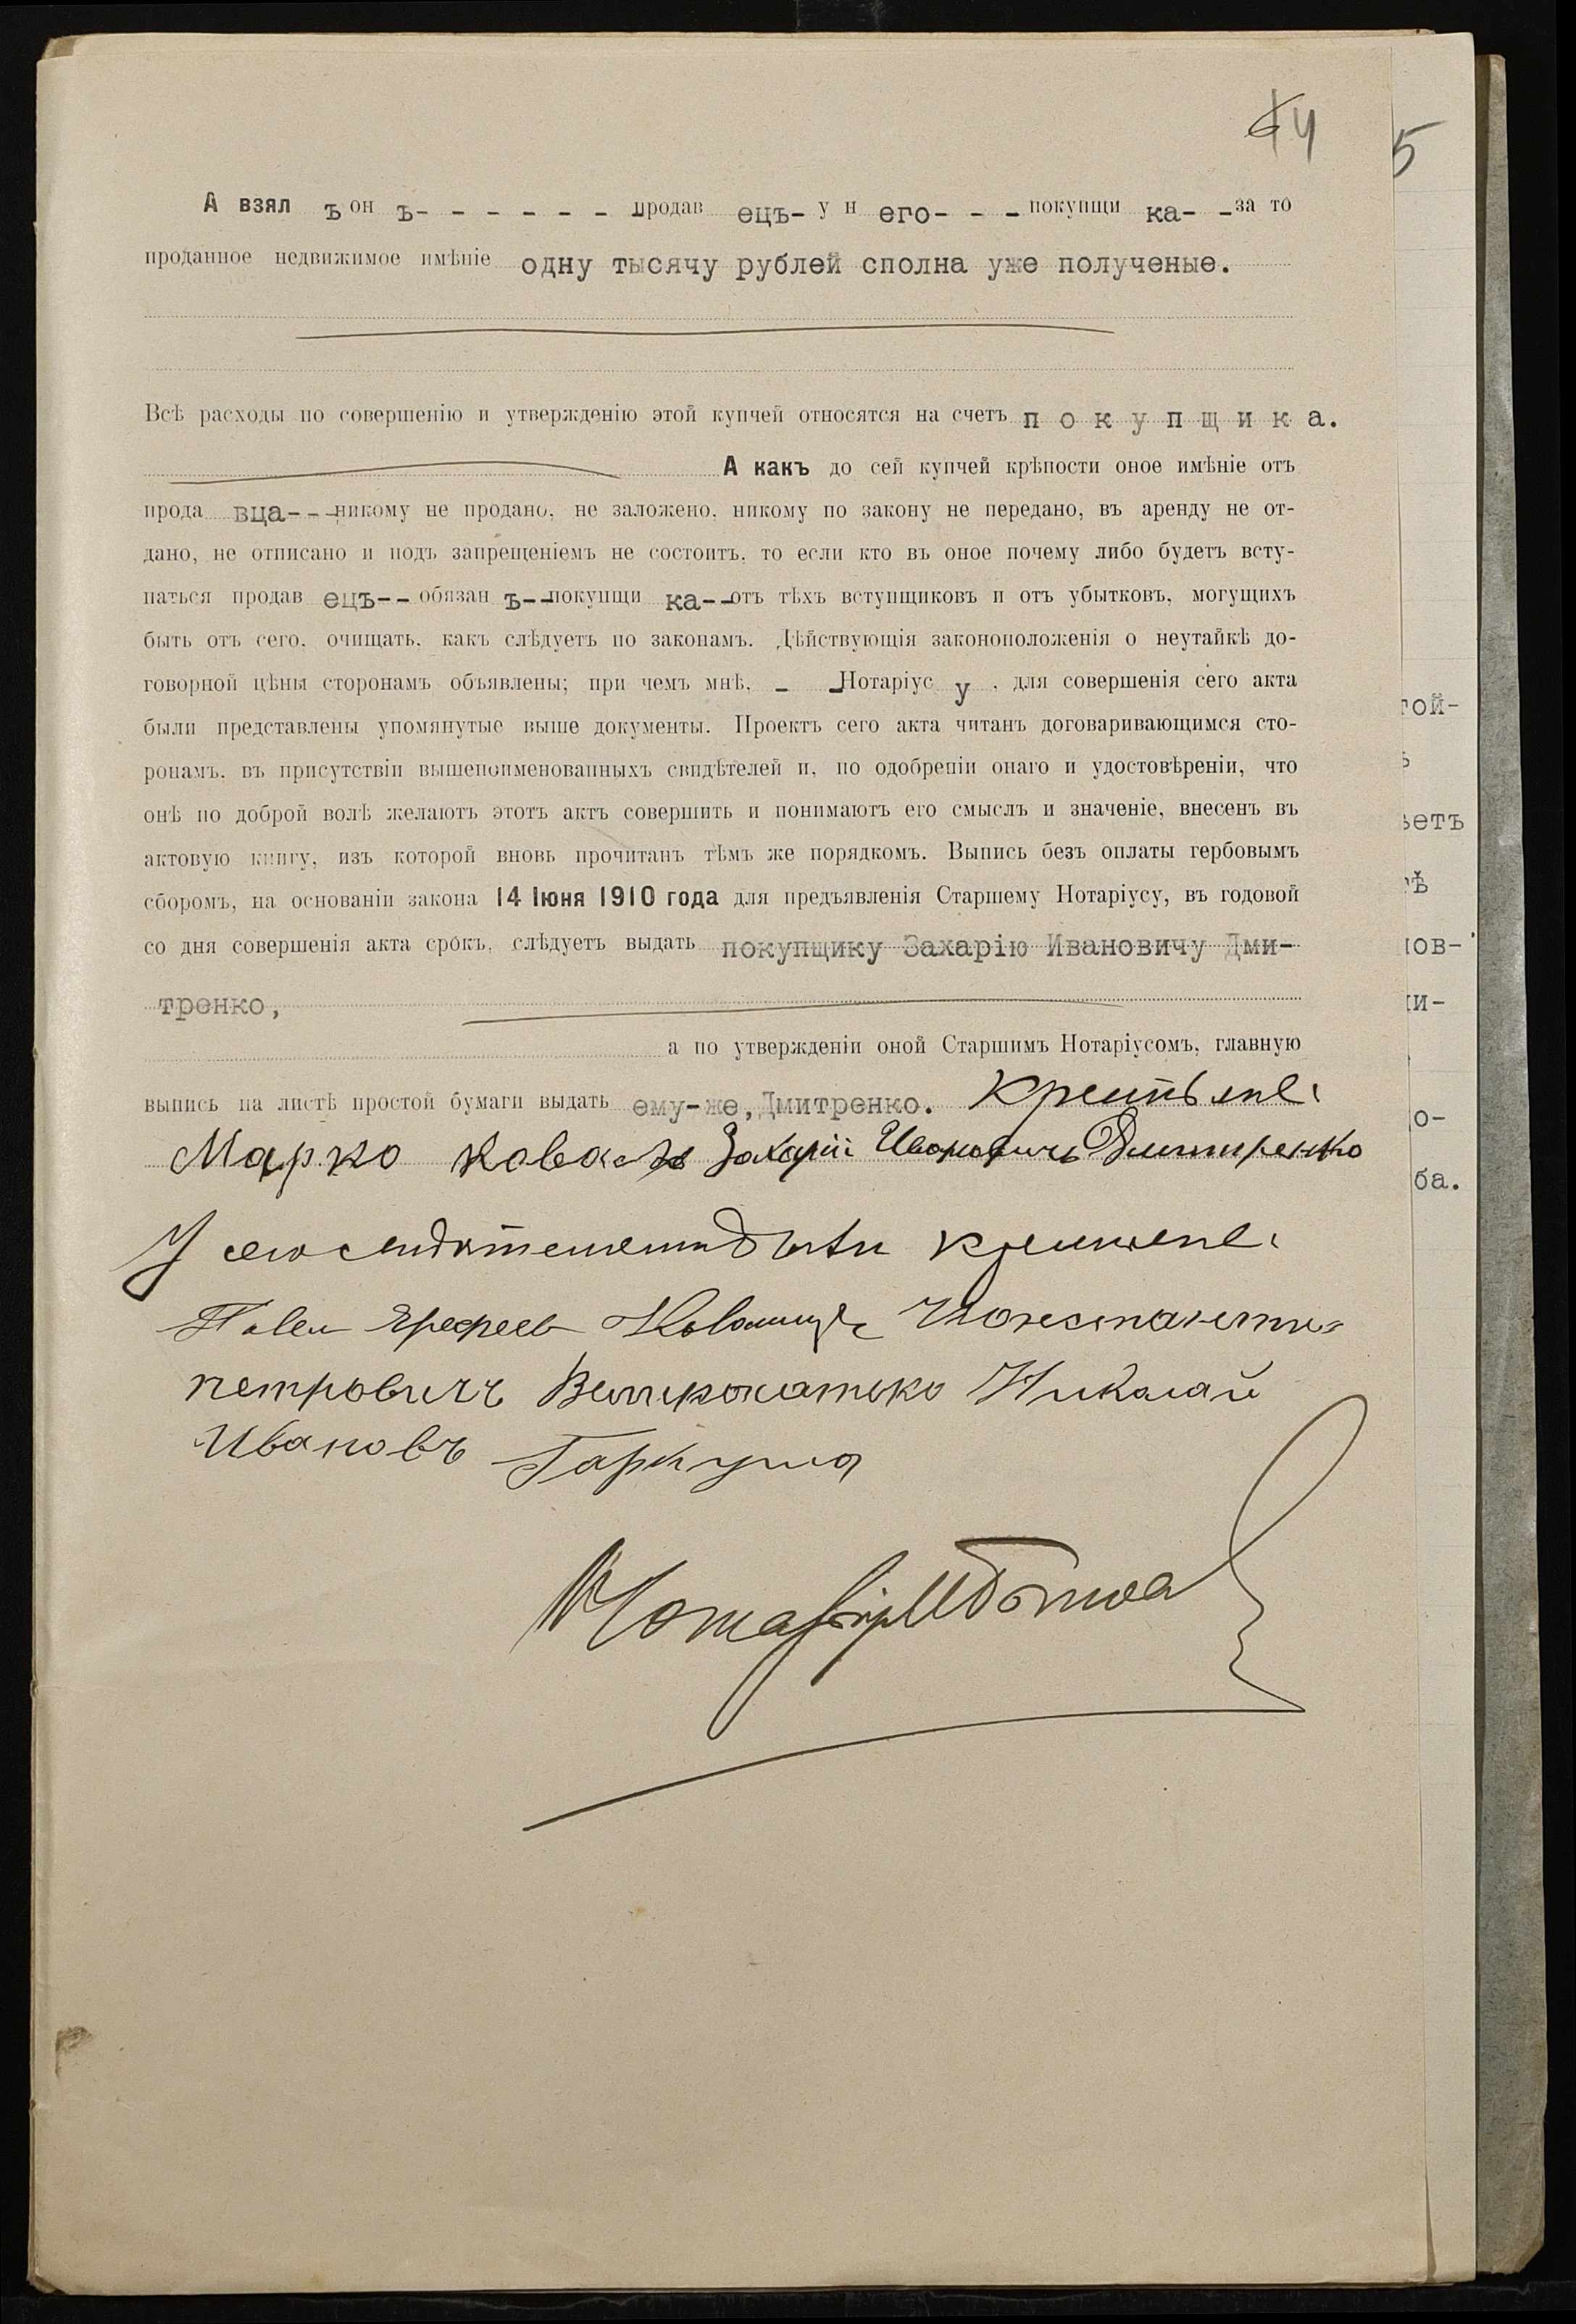 44
5
А взял ъ он ъ- - - - - - - продав ецъ- у н его- - - покупщи ка- - за то
проданное недвижимое имѣніе одну тысячу рублей сполна уже полученые.
Всѣ расходы по совершенію и утвержденію этой купчей относятся на счетъ покупщика.
А какъ до сей купчей крѣпости оное имѣніе отъ
прода вца- - - никому не продано, не заложено, никому по закону не передано, въ аренду не от-
дано, не отписано и подъ запрещеніемъ не состоитъ, то если кто въ оное почему либо будетъ всту-
паться продав ецъ-- обязан ъ-- покупщи ка-- отъ тѣхъ вступщиковъ и отъ убытковъ, могущихъ
быть отъ сего, очищать, какъ слѣдуетъ по законамъ. Дѣйствующія законоположенія о неутайкѣ до-
говорной цѣны сторонамъ объявлены; при чемъ мнѣ, - - Нотаріус у , для совершенія сего акта
были представлены упомянутые выше документы. Проектъ сего акта читанъ договаривающимся сто-
ронамъ, въ присутствіи вышепоименованныхъ свидѣтелей и, по одобреніи онаго и удостовѣреніи, что
онѣ по доброй волѣ желаютъ этотъ актъ совершить и понимаютъ его смыслъ и значеніе, внесенъ въ
актовую книгу, изъ которой вновь прочитанъ тѣмъ же порядкомъ. Выпись безъ оплаты гербовымъ
сборомъ, на основаніи закона 14 Іюня 1910 года для предъявленія Старшему Нотаріусу, въ годовой
со дня совершенія акта срокъ, слѣдуетъ выдать покупщику Захарію Ивановичу Дми-
тренко,
а по утвержденіи оной Старшимъ Нотаріусомъ, главную
выпись на листѣ простой бумаги выдать ему-же, Дмитренко.
Марко Коваль Захарій Ивановичъ Дмитренко
У сего
Павел
петровичъ Николай
Ивановъ Гаркуша
Нотаріусъ
той-
ъ
ветъ
тѣ
нов-
ки-
о-
ба.